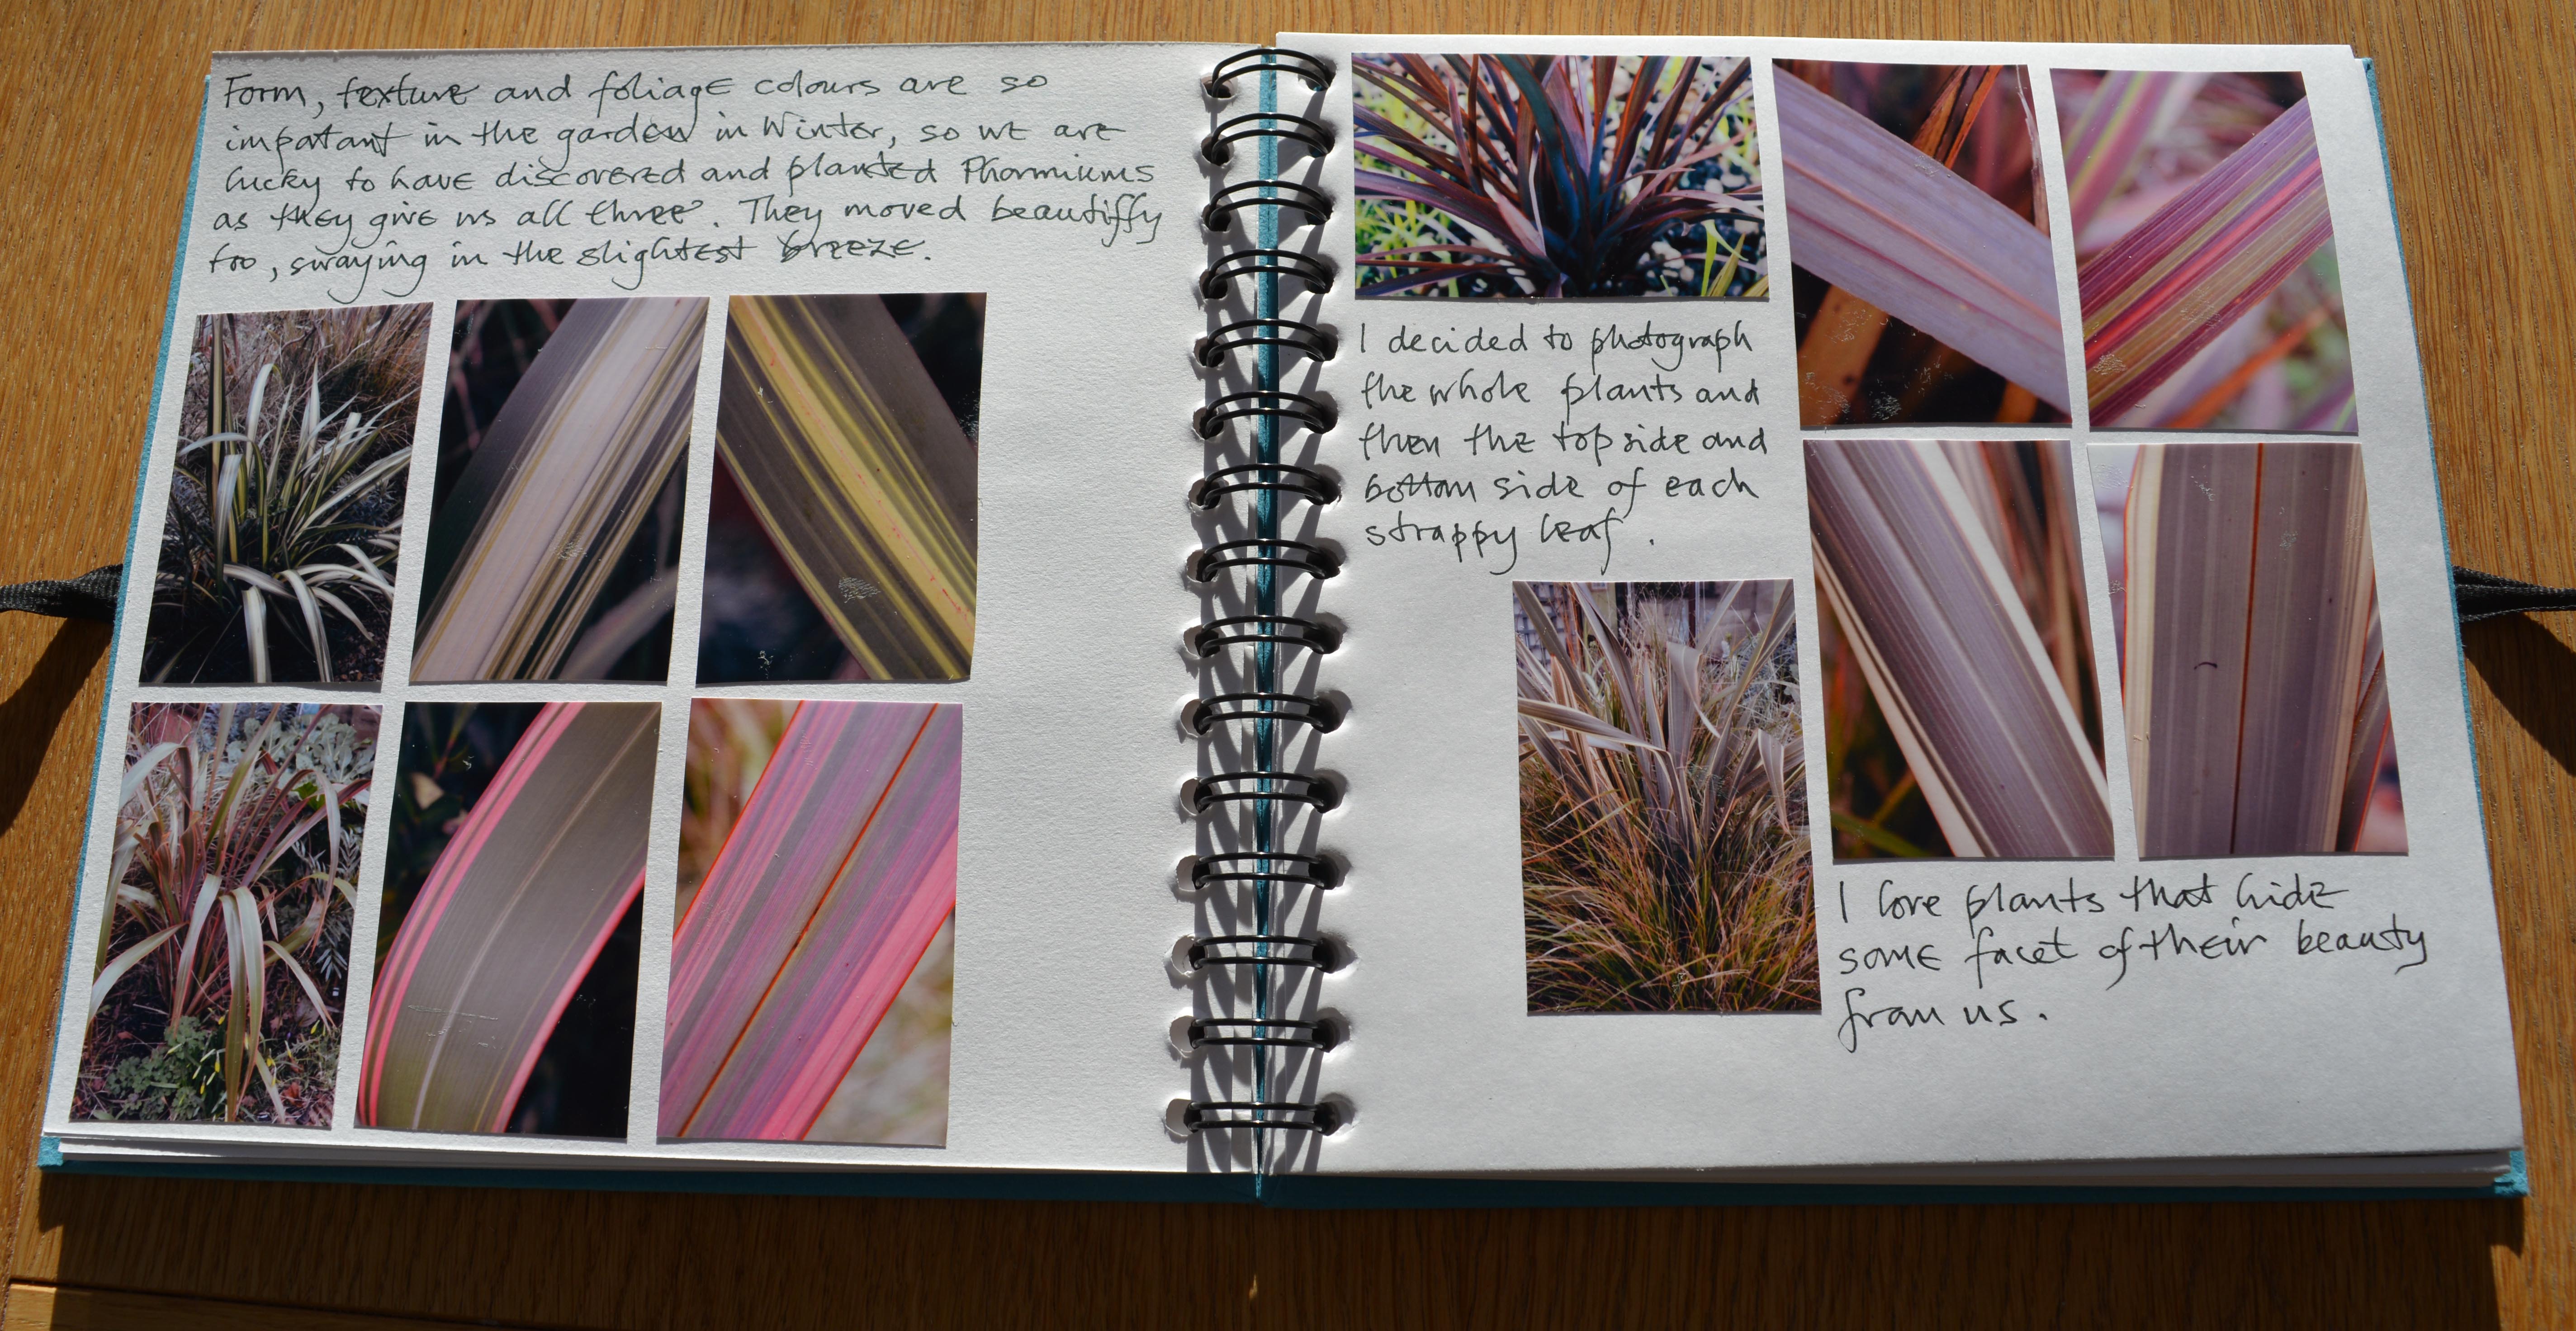 Form, texture and foliage colours are so
impotant in the garden in Winter, so we are
lucky to have discovered and planted Phormiums
as they give us all three. They moved beautiffy
too, swaying in the slightest breeze.
I decided to photograph
the whole plants and
then the top side and
bottom side of each
strappy leaf.
I love plants that hide
some facet of their beauty
from us.